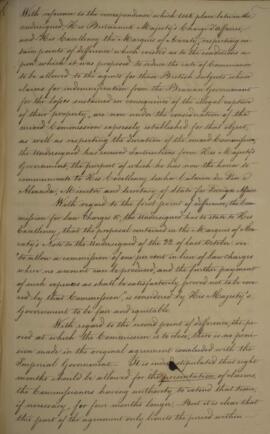 With reference to the correspondence which took place between the
undersigned, His Britannick Majesty's Chargé d'Affaires,
and His Excellency the Marquis of Aracaty, respecting cer-
tain points of difference which existed as to the conditions u-
pon which it was proposed to reduce the rate of Commission
to be allowed to the agents for those British subjects whose
claims for indemnification from the Brazilian Government
for the losses sustained in consequence of the illegal capture
of their property, are now under the consideration of the
mixed Commission expressly established for that object,
as well as respecting the duration of the mixt Commission,
the Undersigned has received instructions from His Majesty's
Government, the purport of which he has now the honor to
communicate to His Excellency Senhor Calmon du Pin e
Almeida, Minister and Secretary of State for Foreign Affairs.
With regard to the first point of difference, the Com-
mission for Law Charges &c, the Undersigned has to state to His
Excellency, that the proposal contained in the Marquis of Ara-
caty's Note to the Undersigned of the 22 of last October, viz.
"to allow a commission of one per cent in lieu of law charges
when no account can be produced, and the further payment
of such expences as shall be satisfactorily proved not to be cove-
red by that Commission", is considered by His Majesty's
Government to be fair and equitable.
With regard to the second point of difference, the pe-
riod at which the Commission is to close, there is no provi-
sion made in the original agreement concluded with the
Imperial Government. It is indeed stipulated that eight
months should be allowed for the presentation of claims,
the Commissioners having authority to extend that time,
if necessary, for four months longer. But it is clear that
this part of the agreement only limits the period within